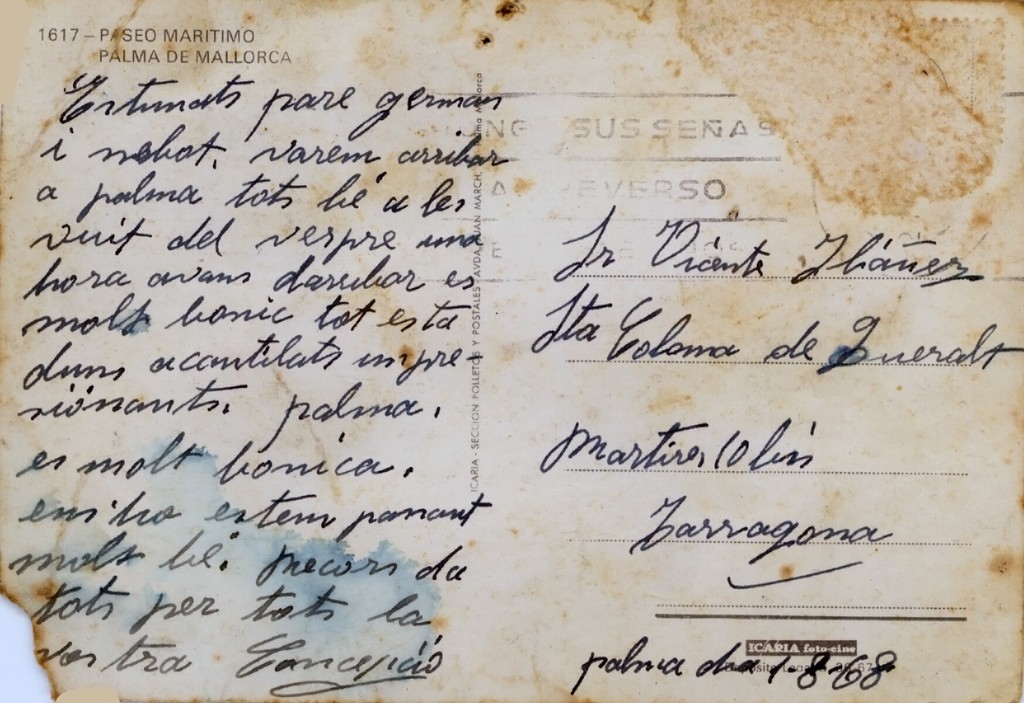 1617 – PASEO MARITIMO
PALMA DE MALLORCA
Estimats pare german
i nebot. varem arribar
a palma tots bé a les
vuit del verpre una
hora avans darribar es
molt bonic tot esta
duns acantilats impre
siönants. palma.
es molt bonica.
ens ho estem pasant
molt bé. records da
tots per tots la
vostra Concepció
ICARIA - SECCION FOLLETOS Y POSTALES - AVDA. JUAN MARCH, Palma Mallorca
SUS SEÑAS
REVERSO
Sr Vicente Ibáñez
Sta Coloma de Queralt
Martires 10 bis
Tarragona
ICARIA foto-cine
palma dia 1-8-68